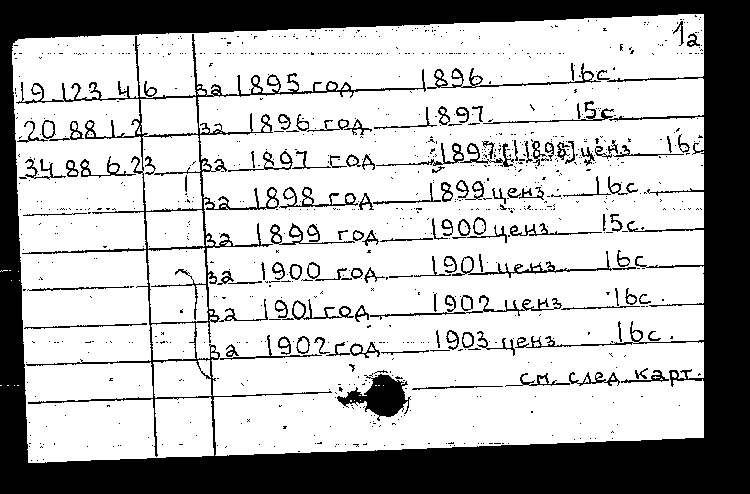 1а
19.123.4.6. за 1895 год 1896. 16с.
20.88.1.2 за 1896 год 1897. 15с.
34.88.6.23 за 1897 год 1897 [1898] ценз 16с
за 1898 год 1899 ценз. 16с.
за 1899 год 1900 ценз. 15с.
за 1900 год 1901 ценз. 16с.
за 1901 год 1902 ценз. 16с.
за 1902 год 1903 ценз. 16с.
см. след. карт.